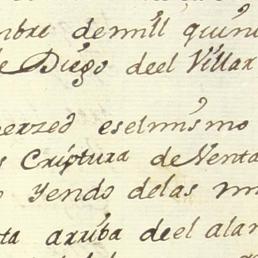 mbre demill quin
e Diego deel Villar
erzed eselmismo
s Criptura deVenta
Yendo delas m
ta arriba deel alam